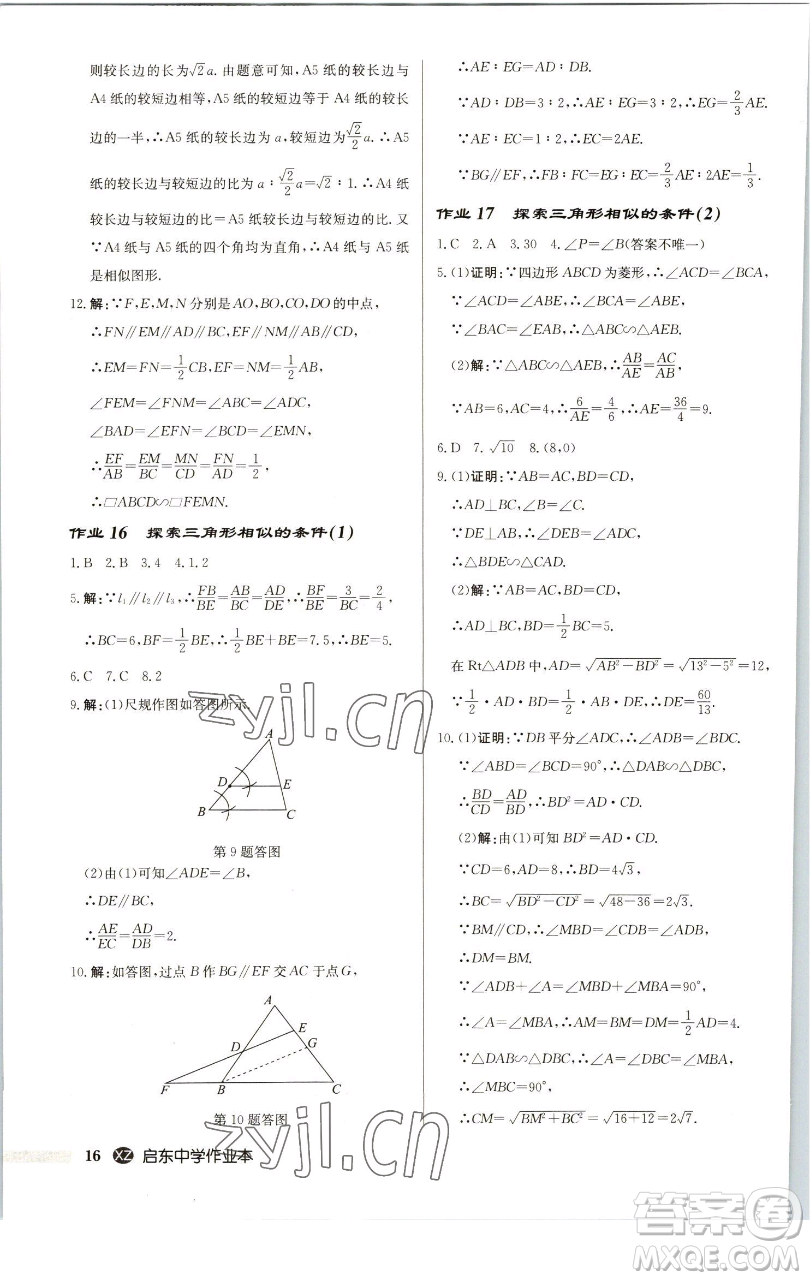 则较长边的长为√2a. 由题意可知,A5 纸的较长边与
A4 纸的较短边相等,A5 纸的较短边等于 A4 纸的较长
边的一半,∴A5 纸的较长边为 a,较短边为√2/2 a. ∴A5
纸的较长边与较短边的比为 a∶√2/2 a=√2∶1. ∴A4 纸
较长边与较短边的比=A5 纸较长边与较短边的比. 又
∵A4 纸与 A5 纸的四个角均为直角,∴A4 纸与 A5 纸
是相似图形.
12. 解:∵F,E,M,N 分别是AO,BO,CO,DO 的中点,
∴FN∥EM∥AD∥BC,EF∥NM∥AB∥CD,
∴EM=FN=1/2 CB,EF=NM=1/2 AB,
∠FEM=∠FNM=∠ABC=∠ADC,
∠BAD=∠EFN=∠BCD=∠EMN,
∴EF/AB=EM/BC=MN/CD=FN/AD=1/2,
∴□ABCD∽□FEMN.
作业 16 探索三角形相似的条件(1)
1. B 2. B 3. 4 4. 1. 2
5. 解:∵l₁∥l₂∥l₃,∴FB/BE=AB/BC=AD/DE,∴BF/BE=3/BC=2/4,
∴BC=6,BF=1/2 BE,∴1/2 BE+BE=7.5,∴BE=5.
6. C 7. C 8. 2
9. 解:(1)尺规作图如答图所示.
A
D
E
B
C
第 9 题答图
(2)由(1)可知∠ADE=∠B,
∴DE∥BC,
∴AE/EC=AD/DB=2.
10. 解:如答图,过点 B 作 BG∥EF 交 AC 于点 G,
A
E
G
D
F
B
C
第 10 题答图
16 XZ 启东中学作业本
∴AE∶EG=AD∶DB.
∵AD∶DB=3∶2,∴AE∶EG=3∶2,∴EG=2/3 AE.
∵AE∶EC=1∶2,∴EC=2AE.
∵BG∥EF,∴FB∶FC=EG∶EC=2/3 AE∶2AE=1/3.
作业 17 探索三角形相似的条件(2)
1. C 2. A 3. 30 4. ∠P=∠B(答案不唯一)
5. (1)证明:∵四边形 ABCD 为菱形,∴∠ACD=∠BCA,
∵∠ACD=∠ABE,∴∠BCA=∠ABE,
∵∠BAC=∠EAB,∴△ABC∽△AEB.
(2)解:∵△ABC∽△AEB,∴AB/AE=AC/AB,
∵AB=6,AC=4,∴6/AE=4/6,∴AE=36/4=9.
6. D 7. √10 8. (8,0)
9. (1)证明:∵AB=AC,BD=CD,
∴AD⊥BC,∠B=∠C.
∵DE⊥AB,∴∠DEB=∠ADC,
∴△BDE∽△CAD.
(2)解:∵AB=AC,BD=CD,
∴AD⊥BC,BD=1/2 BC=5.
在 Rt△ADB 中,AD=√(AB²−BD²)=√(13²−5²)=12,
∵1/2·AD·BD=1/2·AB·DE,∴DE=60/13.
10. (1)证明:∵DB 平分∠ADC,∴∠ADB=∠BDC.
∵∠ABD=∠BCD=90°,∴△DAB∽△DBC,
∴BD/CD=AD/BD,∴BD²=AD·CD.
(2)解:由(1)可知 BD²=AD·CD.
∵CD=6,AD=8,∴BD=4√3,
∴BC=√(BD²−CD²)=√(48−36)=2√3.
∵BM∥CD,∴∠MBD=∠BDC=∠ADB,
∴DM=BM.
∵∠ADB+∠A=∠MBD+∠MBA=90°,
∴∠A=∠MBA,∴AM=BM=DM=1/2 AD=4.
∵△DAB∽△DBC,∴∠A=∠DBC=∠MBA,
∴∠MBC=90°,
∴CM=√(BM²+BC²)=√(16+12)=2√7.
zyjl.cn
zyjl.cn
答案卷
MXQE.COM